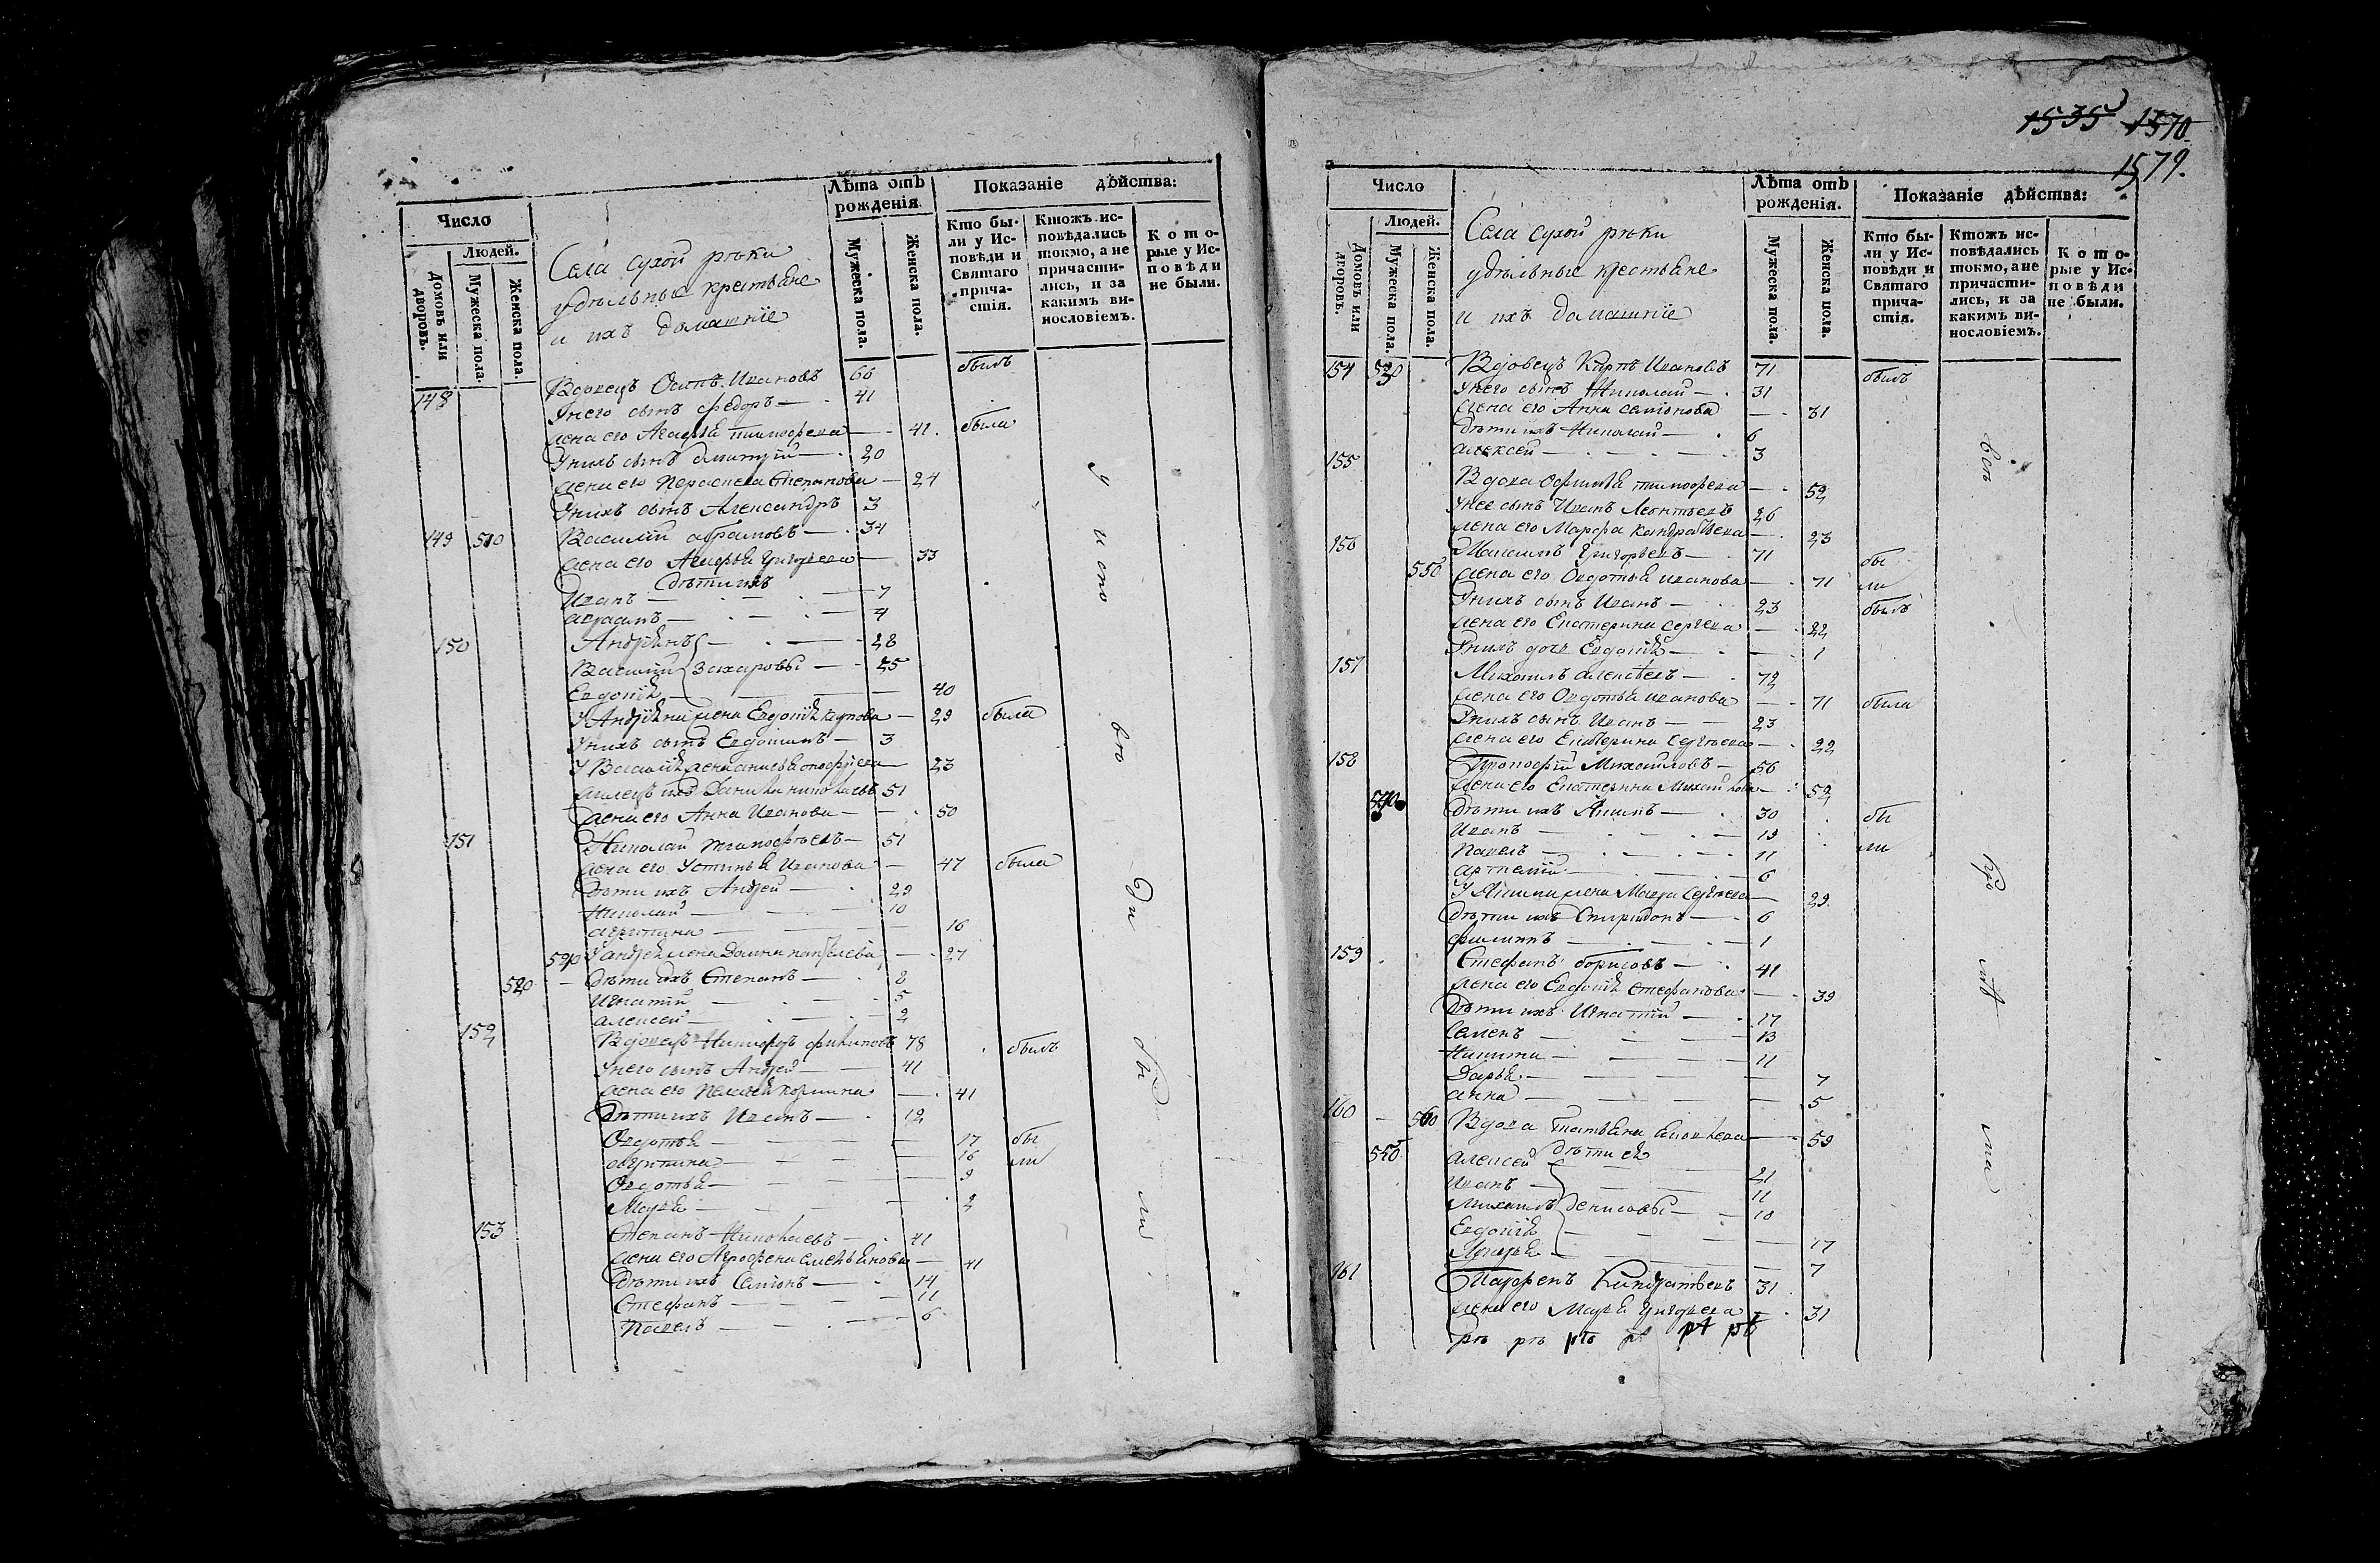 Число
Людей.
Домовъ или дворовъ.
Мужеска пола.
Женска пола.
Села Сухой реки
удельные крестьяне
и ихъ домашніе
Лѣта отъ рожденія.
Мужеска пола.
Женска пола.
Показаніе дѣйства:
Кто были у Исповѣди и Святаго причастія.
Ктожъ исповѣдались токмо, а не причастились, и за какимъ винословіемъ.
Которые у Исповѣди не были.
148 Вдовецъ Осипъ Ивановъ 66 былъ
У него сынъ Федоръ 41
жена его Агафья Тимофеева 41 была
У нихъ сынъ Дмитрій 20
жена его Парасковья Степанова 24
У нихъ сынъ Александръ 3
149 510 Василій Абрамовъ 34
жена его Григорьева 33
дети ихъ
Иванъ 7
4
150 Андрѣянъ 28
Василій Захаровы 25
Евдокія 40
У Андрѣяна жена Евдокія 29 была
У нихъ сынъ Евдокимъ 3
У Василія жена 23
51
жена его Анна Иванова 50
151 Николай Тимофеевъ 51
жена его Устинья Иванова 47 была
дети ихъ Андрей 29
Николай 10
Агрипина 16
520 У Андрея жена 27
520 дети ихъ Степанъ 8
Игнатій 5
Алексей 2
152 Вдовецъ Никифоръ Филиповъ 78 былъ
У него сынъ Андрей 41
жена его Пелагея 41
Дети ихъ Иванъ 12
Овдотья 17 бы
Агрипина 16 ли
Овдотья 9
Марья 2
153 Степанъ Николаевъ 41
жена его Агрофена Емельянова 41
Дети ихъ Семіонъ 14
Стефанъ 11
Павелъ 6
у испо ве ди бы ли
1535 1570
1579.
Число
Людей.
Домовъ или дворовъ.
Мужеска пола.
Женска пола.
Села Сухой реки
удельные крестьяне
и ихъ домашніе
Лѣта отъ рожденія.
Мужеска пола.
Женска пола.
Показаніе дѣйства:
Кто были у Исповѣди и Святаго причастія.
Ктожъ исповѣдались токмо, а не причастились, и за какимъ винословіемъ.
Которые у Исповѣди не были.
154 530 Вдовецъ Карпъ Ивановъ 71 былъ
У него сынъ Николай 31
жена его Анна Семіонова 31
Дети ихъ Николай 6
Алексей 3
155 Вдова Тимофеева 52
У нее сынъ Иванъ Леонтьевъ 26
жена его Марфа Кондратьева 23
156 Максимъ Григорьевъ 71 бы
550 жена его Овдотья Иванова 71 ли
У нихъ сынъ Иванъ 23 былъ
жена его Екатерина Сергеева 22
У нихъ дочь Евдокія 1
157 Михаилъ Алексеевъ 72
жена его Овдотья Иванова 71 была
У нихъ сынъ Иванъ 23
жена его Екатерина Сергеева 22
158 Прокофій Михайловъ 56
540 жена его Екатерина Михайлова 52
Дети ихъ Якимъ 30 бы
Иванъ 19
Павелъ 11 ли
Артемій 6
У Якима жена Сергеева 29
Дети ихъ Спиридонъ 6
Филипъ 1
159 Стефанъ Борисовъ 41
жена его Евдокія Стефанова 39
Дети ихъ Игнатій 17
Семенъ 13
Никита 11
Дарья 7
Анна 5
160 560 Вдова Татьяна 59
дети ея
550 Алексей 21
Иванъ 11
Михаилъ Денисовы 10
Евдокія 17
Марья 7
161 Парфенъ Кандратьевъ 31
жена его Марья Григорьева 31